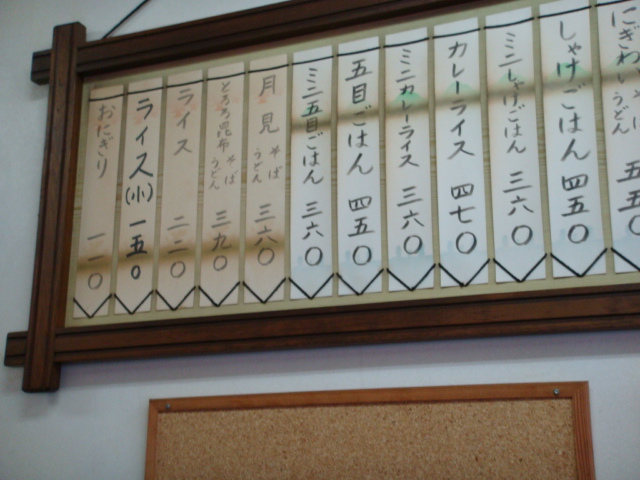 にぎわいそば
うどん 五五〇
しゃけごはん 四五〇
ミニしゃけごはん 三六〇
カレーライス 四七〇
ミニカレーライス 三六〇
五目ごはん 四五〇
ミニ五目ごはん 三六〇
月見そば
うどん 三六〇
とろろ昆布そば
うどん 三九〇
ライス 二二〇
ライス(小) 一五〇
おにぎり 一一〇